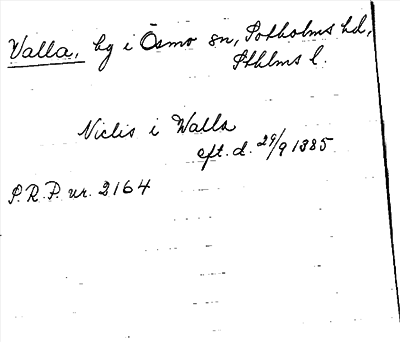 Valla, by i Ösmo sn, Sotholms hd,
Sthlms l.
Niclis i Walla
eft. d. 29/9 1385
S.R.P. nr. 2164